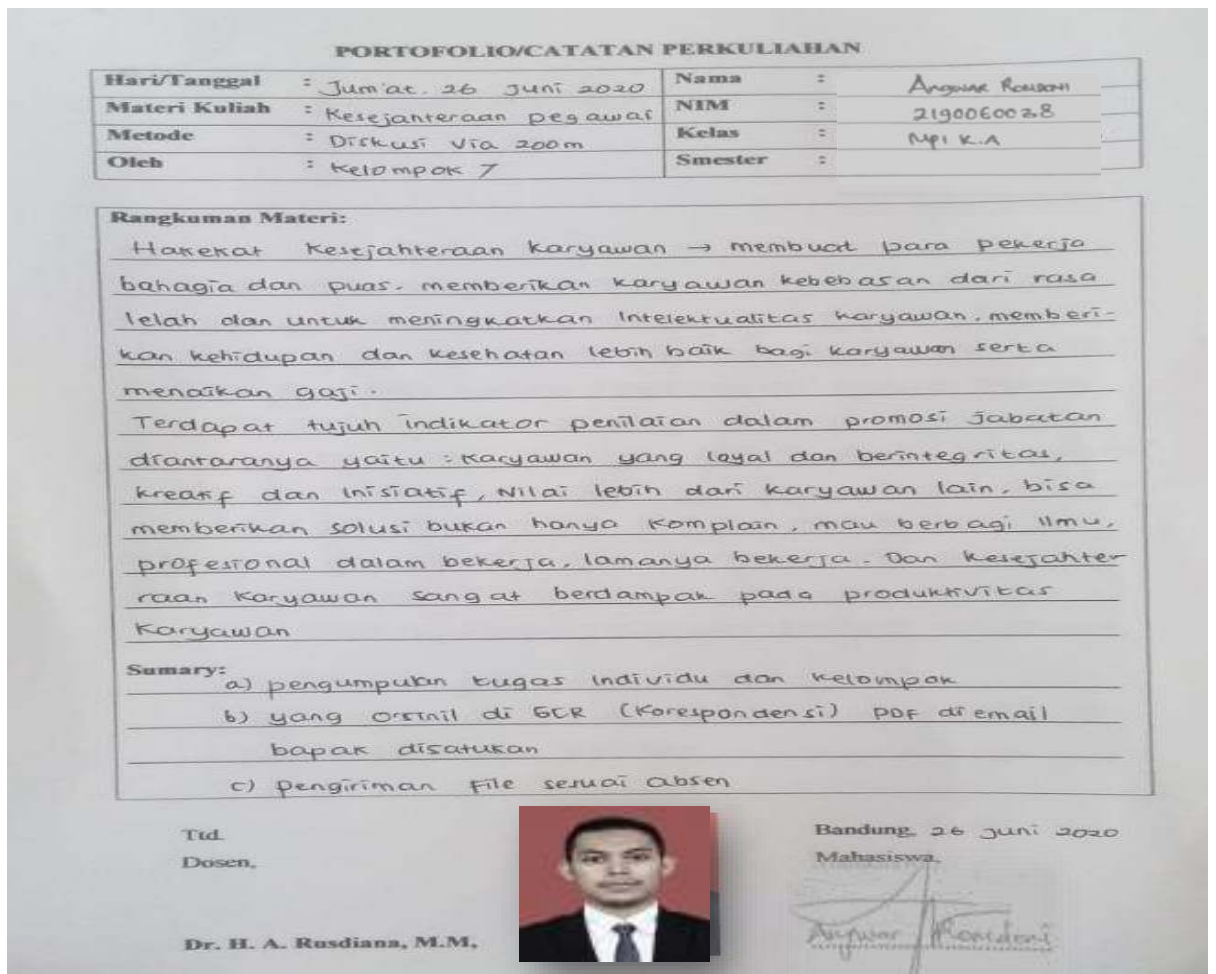 PORTOFOLIO/CATATAN PERKULIAHAN
Hari/Tanggal : Jum'at. 26 Juni 2020
Materi Kuliah : Kesejahteraan pegawai
Metode : Diskusi via zoom
Oleh : Kelompok 7
Nama : Angwar
NIM : 2190060028
Kelas : MPI K.A
Smester :
Rangkuman Materi:
Hakekat Kesejahteraan karyawan → membuat para pekerja
bahagia dan puas. memberikan karyawan kebebasan dari rasa
lelah dan untuk meningkatkan Intelektualitas karyawan. memberi-
kan kehidupan dan kesehatan lebih baik bagi karyawan serta
menaikan gaji.
Terdapat tujuh indikator penilaian dalam promosi jabatan
diantaranya yaitu : Karyawan yang loyal dan berintegritas,
kreatif dan Inisiatif, Nilai lebih dari karyawan lain, bisa
memberikan solusi bukan hanya Komplain, mau berbagi Ilmu,
profesional dalam bekerja, lamanya bekerja. Dan Kesejahter
raan Karyawan sangat berdampak pada produktivitas
Karyawan
Sumary:
a) pengumpulan tugas individu dan kelompok
b) yang orsinil di GCR (Korespondensi) PDF di email
bapak disatukan
c) Pengiriman File sesuai absen
Ttd.
Dosen,
Dr. H. A. Rusdiana, M.M,
Bandung, 26 Juni 2020
Mahasiswa,
Angwar